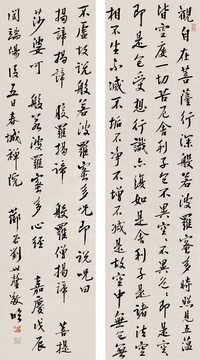 觀自在菩薩行深般若波羅蜜多時照見五蘊
皆空度一切苦厄舍利子色不異空空不異色色即是空空
即是色受想行識亦復如是舍利子是諸法空
相不生不滅不垢不淨不增不減是故空中無色無
不虛故說般若波羅蜜多咒即說咒曰
揭諦揭諦 般羅揭諦 般羅僧揭諦 菩提
莎婆呵 般若波羅蜜多心經 嘉慶戊辰
閏端陽後五日春城禪院 石劉